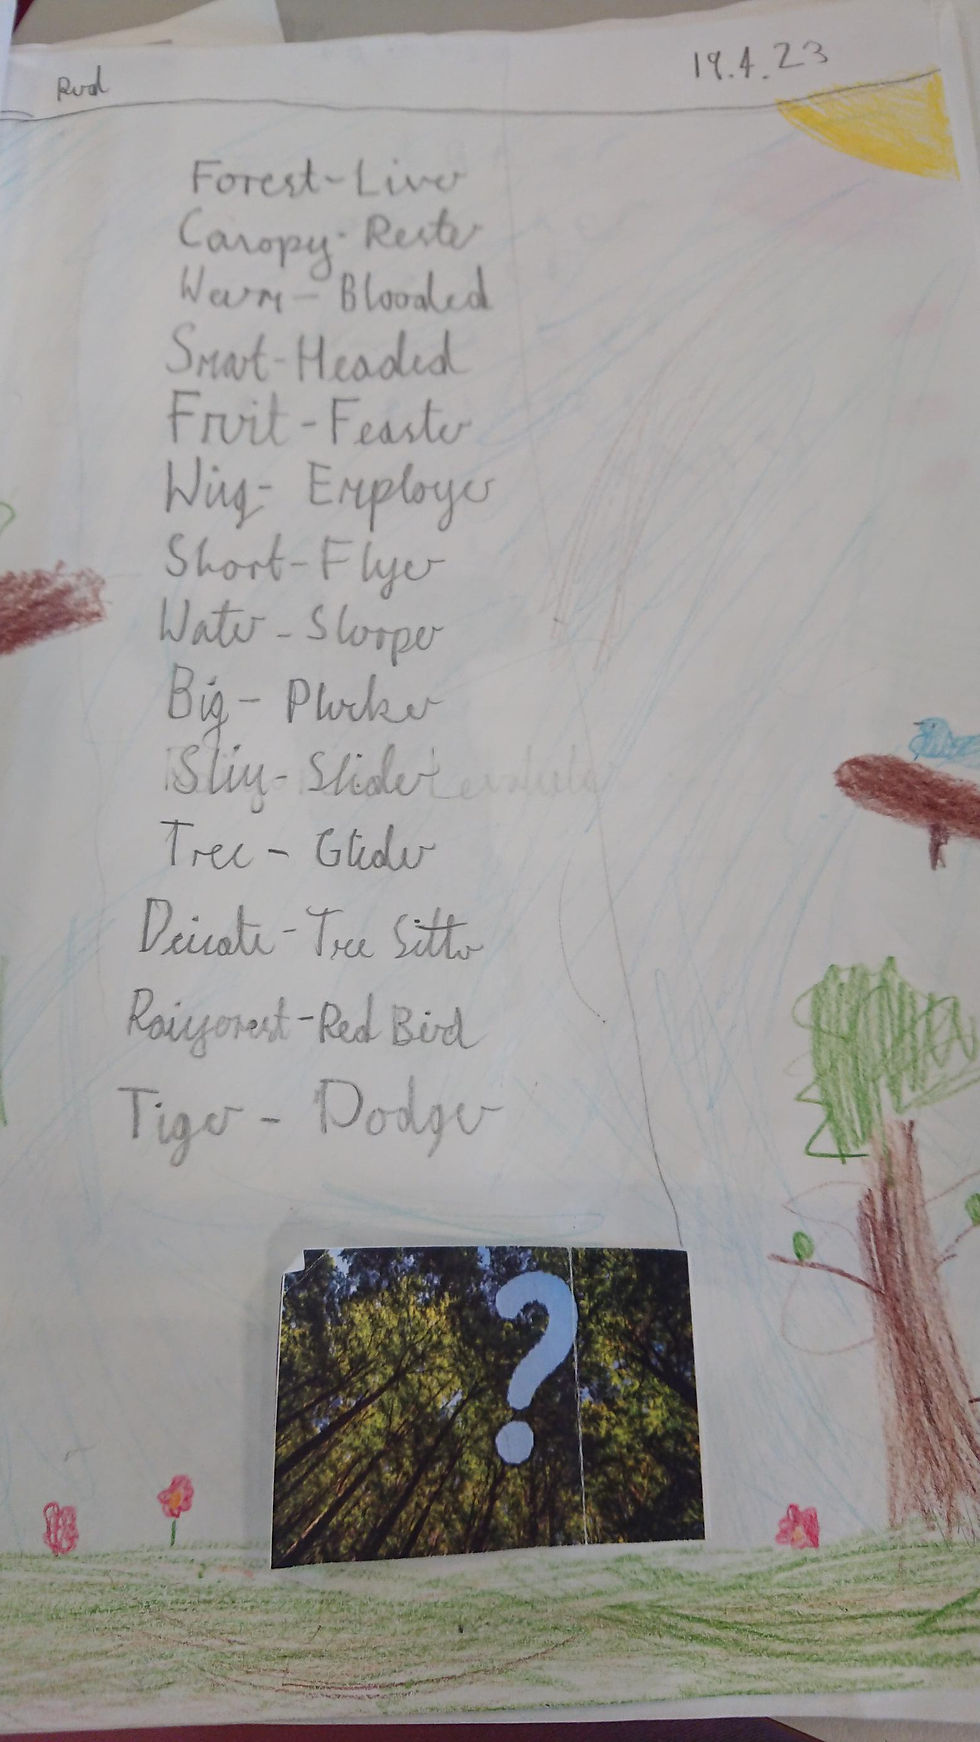 Rud 19.4.23
Forest-Liver
Canopy-Rester
Warm-Blooded
Smart-Headed
Fruit-Feaster
Wing-Employer
Short-Flyer
Water-Slurper
Big-Plucker
Sliy-Slider
Tree-Glider
Deicate-Tree Sitter
Rainforest-Red Bird
Tiger-Dodger
?